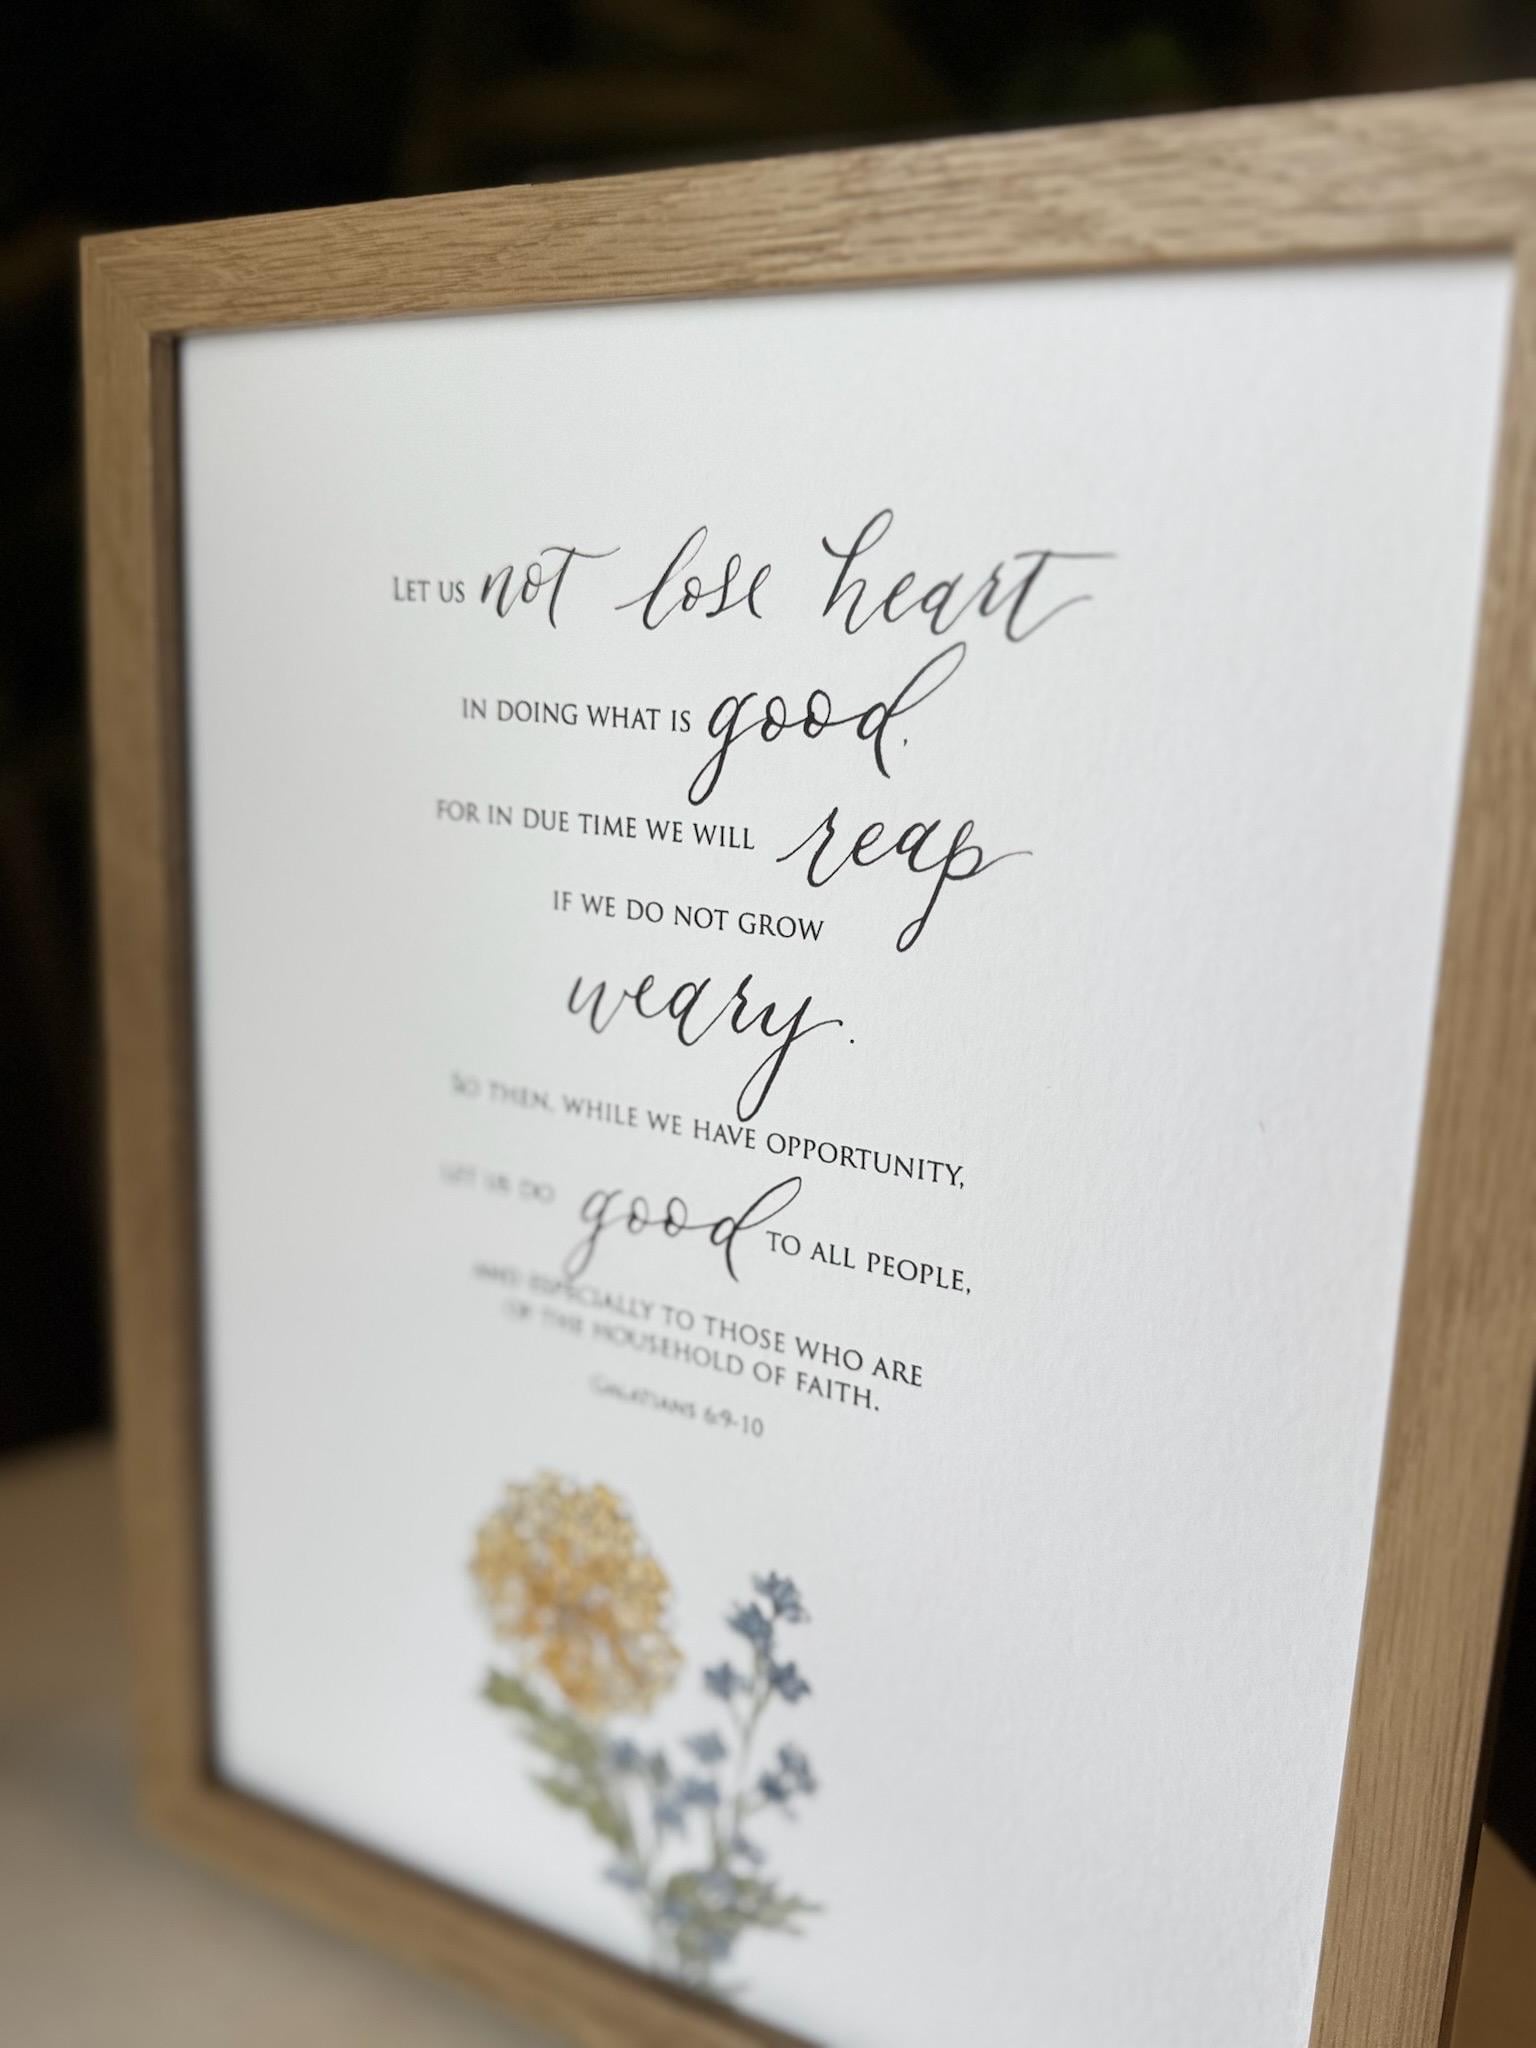 LET US not lose heart
IN DOING WHAT IS good,
FOR IN DUE TIME WE WILL reap
IF WE DO NOT GROW
weary.
SO THEN, WHILE WE HAVE OPPORTUNITY,
LET US DO good TO ALL PEOPLE,
AND ESPECIALLY TO THOSE WHO ARE
OF THE HOUSEHOLD OF FAITH.
GALATIANS 6:9-10